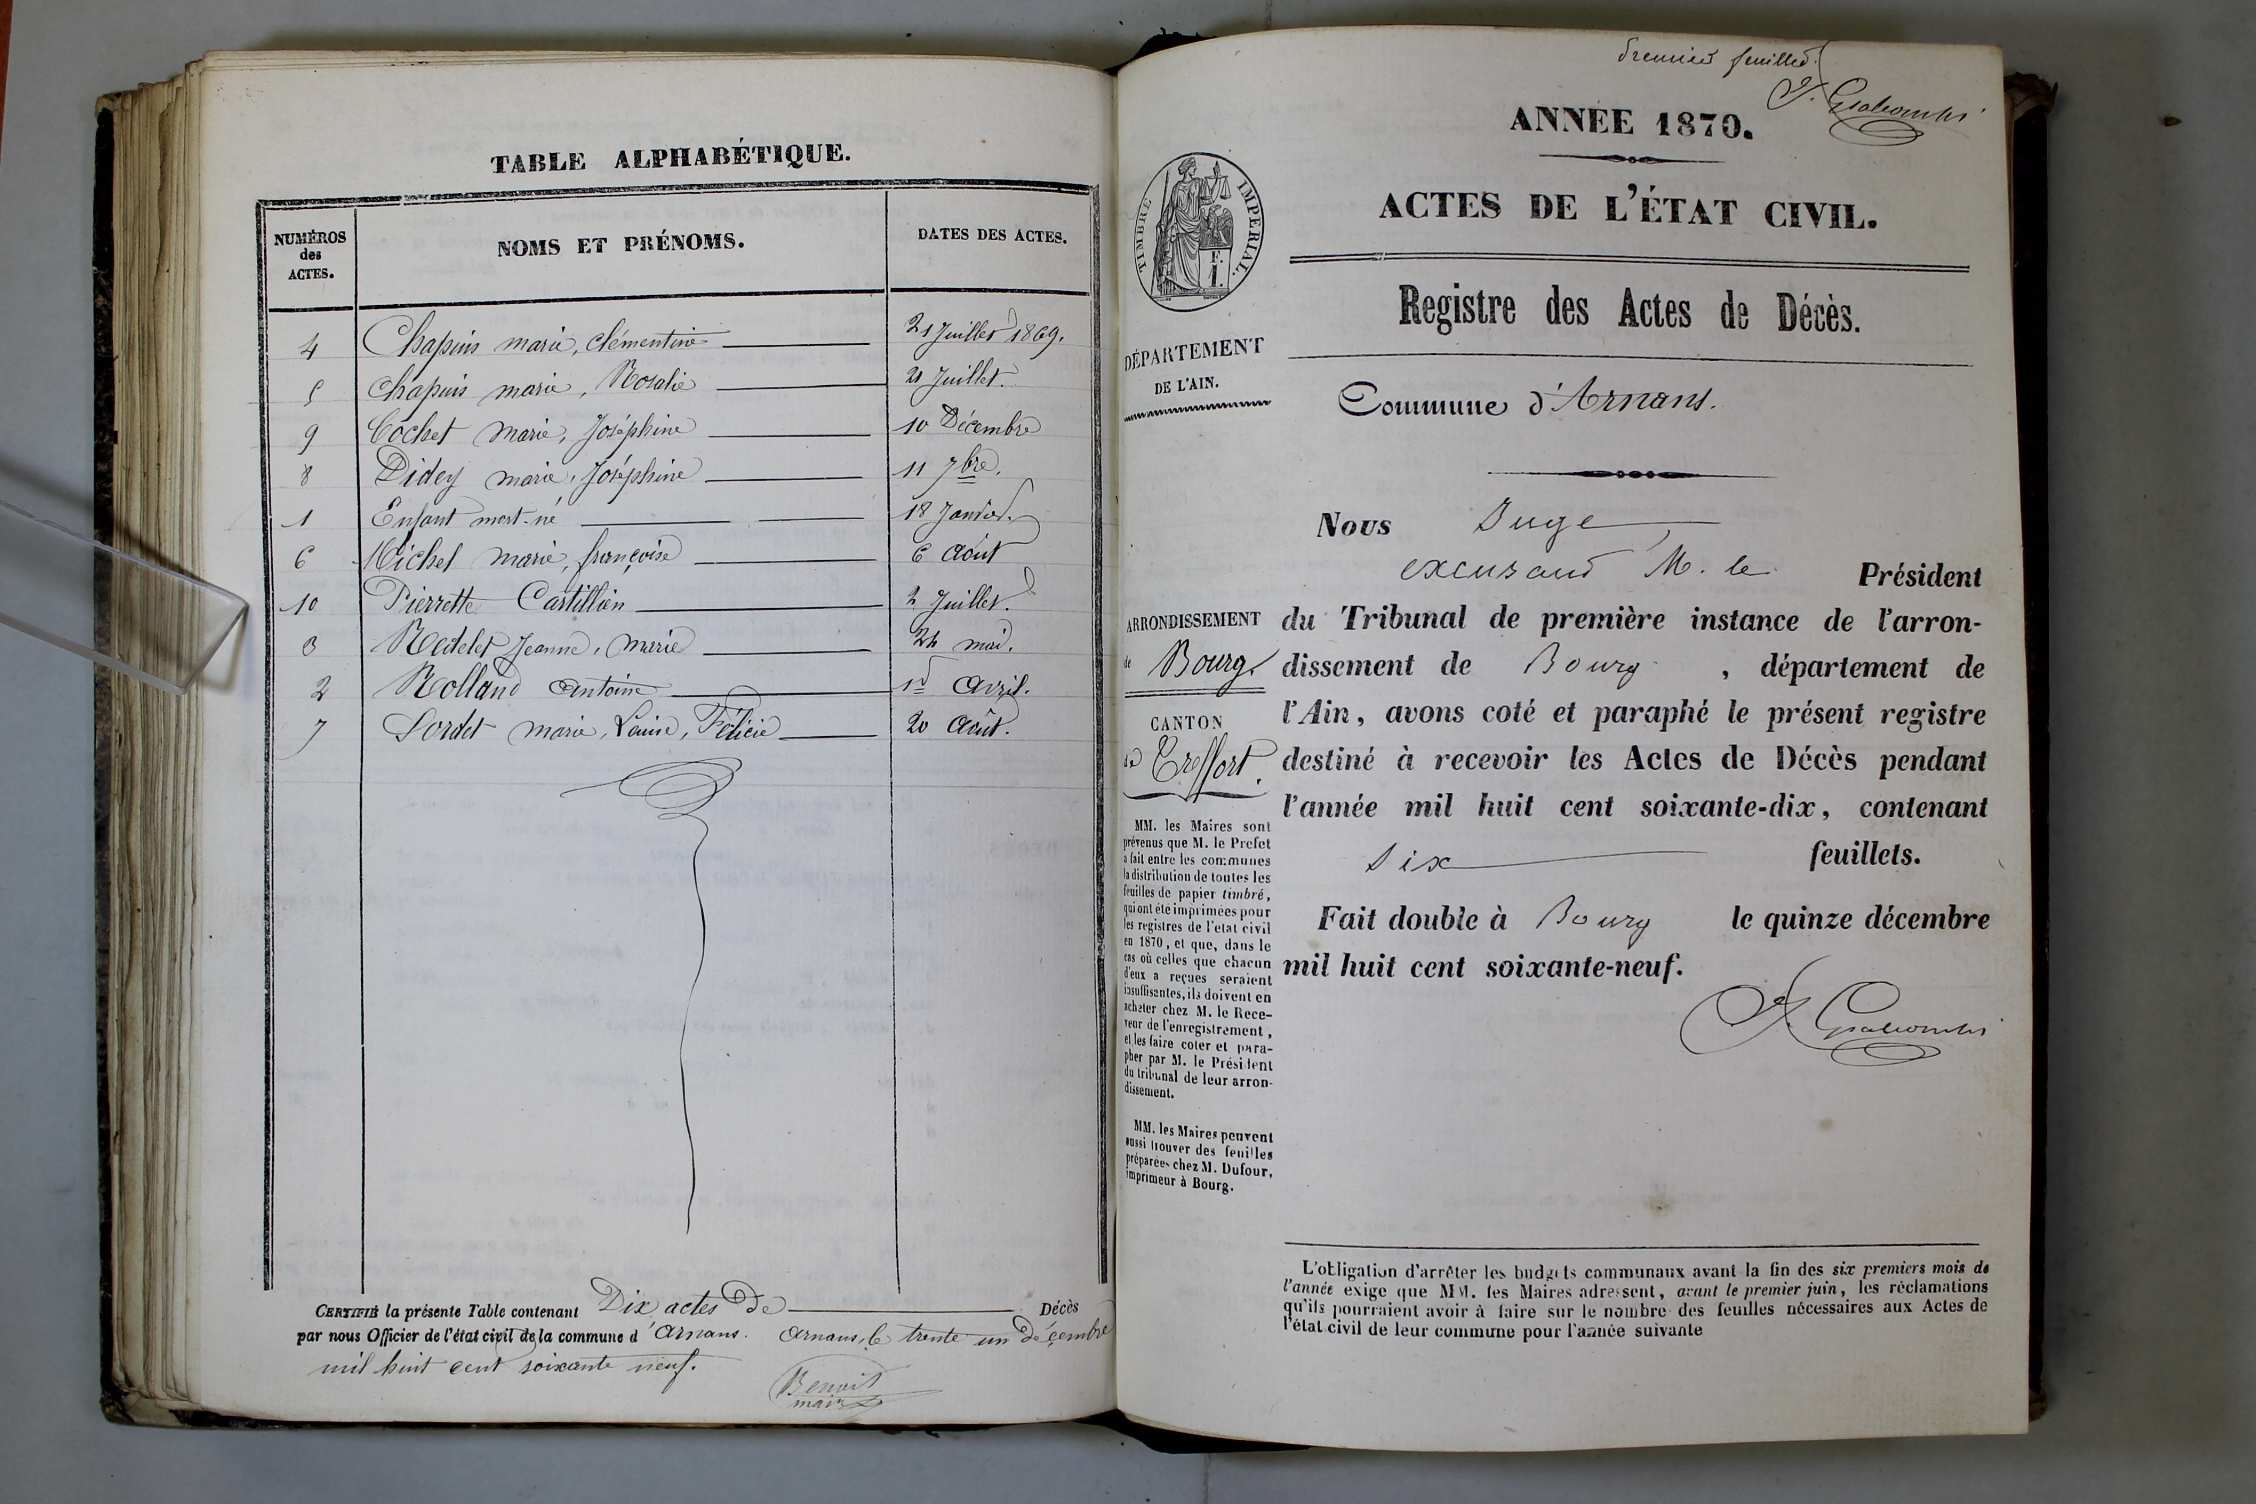 TABLE ALPHABÉTIQUE.
NUMÉROS des ACTES. NOMS ET PRÉNOMS. DATES DES ACTES.
4 Chapuis marie, clémentine 21 Juillet 1869.
5 Chapuis marie, Rosalie 21 Juillet.
9 Cochet marie, Joséphine 10 Décembre
8 Didey marie, Joséphine 11 7bre.
1 Enfant mort-né 18 Janvier.
6 Michel marie, françoise 6 Août
10 Pierrette Castillon 2 Juillet.
3 Jeanne, marie 24 mai.
2 Rolland Antoine 1er Avril.
7 Sordet marie, Louise, Félicie 20 Août.
CERTIFIÉ la présente Table contenant Dix actes de Décès
par nous Officier de l'état civil de la commune d'Arnans. Arnans, le trente un Décembre
mil huit cent soixante neuf.
Benoit
maire
premier feuillet.
ANNÉE 1870.
ACTES DE L'ÉTAT CIVIL.
TIMBRE IMPÉRIAL.
Registre des Actes de Décès.
DÉPARTEMENT
DE L'AIN.
Commune d'Arnans.
Nous Juge
M. le Président
du Tribunal de première instance de l'arron-
dissement de Bourg, département de
l'Ain, avons coté et paraphé le présent registre
destiné à recevoir les Actes de Décès pendant
l'année mil huit cent soixante-dix, contenant
six feuillets.
Fait double à Bourg le quinze décembre
mil huit cent soixante-neuf.
ARRONDISSEMENT
de Bourg.
CANTON
de Treffort.
MM. les Maires sont
prévenus que M. le Prefet
a fait entre les communes
la distribution de toutes les
feuilles de papier timbré,
qui ont été imprimées pour
les registres de l'etat civil
en 1870, et que, dans le
cas où celles que chacun
d'eux a reçues seraient
insuffisantes, ils doivent en
acheter chez M. le Rece-
veur de l'enregistrement,
et les faire coter et para-
pher par M. le Président
du tribunal de leur arron-
dissement.
MM. les Maires peuvent
aussi trouver des feuilles
préparées chez M. Dufour,
imprimeur à Bourg.
L'obligation d'arrêter les budgets communaux avant la fin des six premiers mois de
l'année exige que MM. les Maires adressent, avant le premier juin, les réclamations
qu'ils pourraient avoir à faire sur le nombre des feuilles nécessaires aux Actes de
l'état civil de leur commune pour l'année suivante